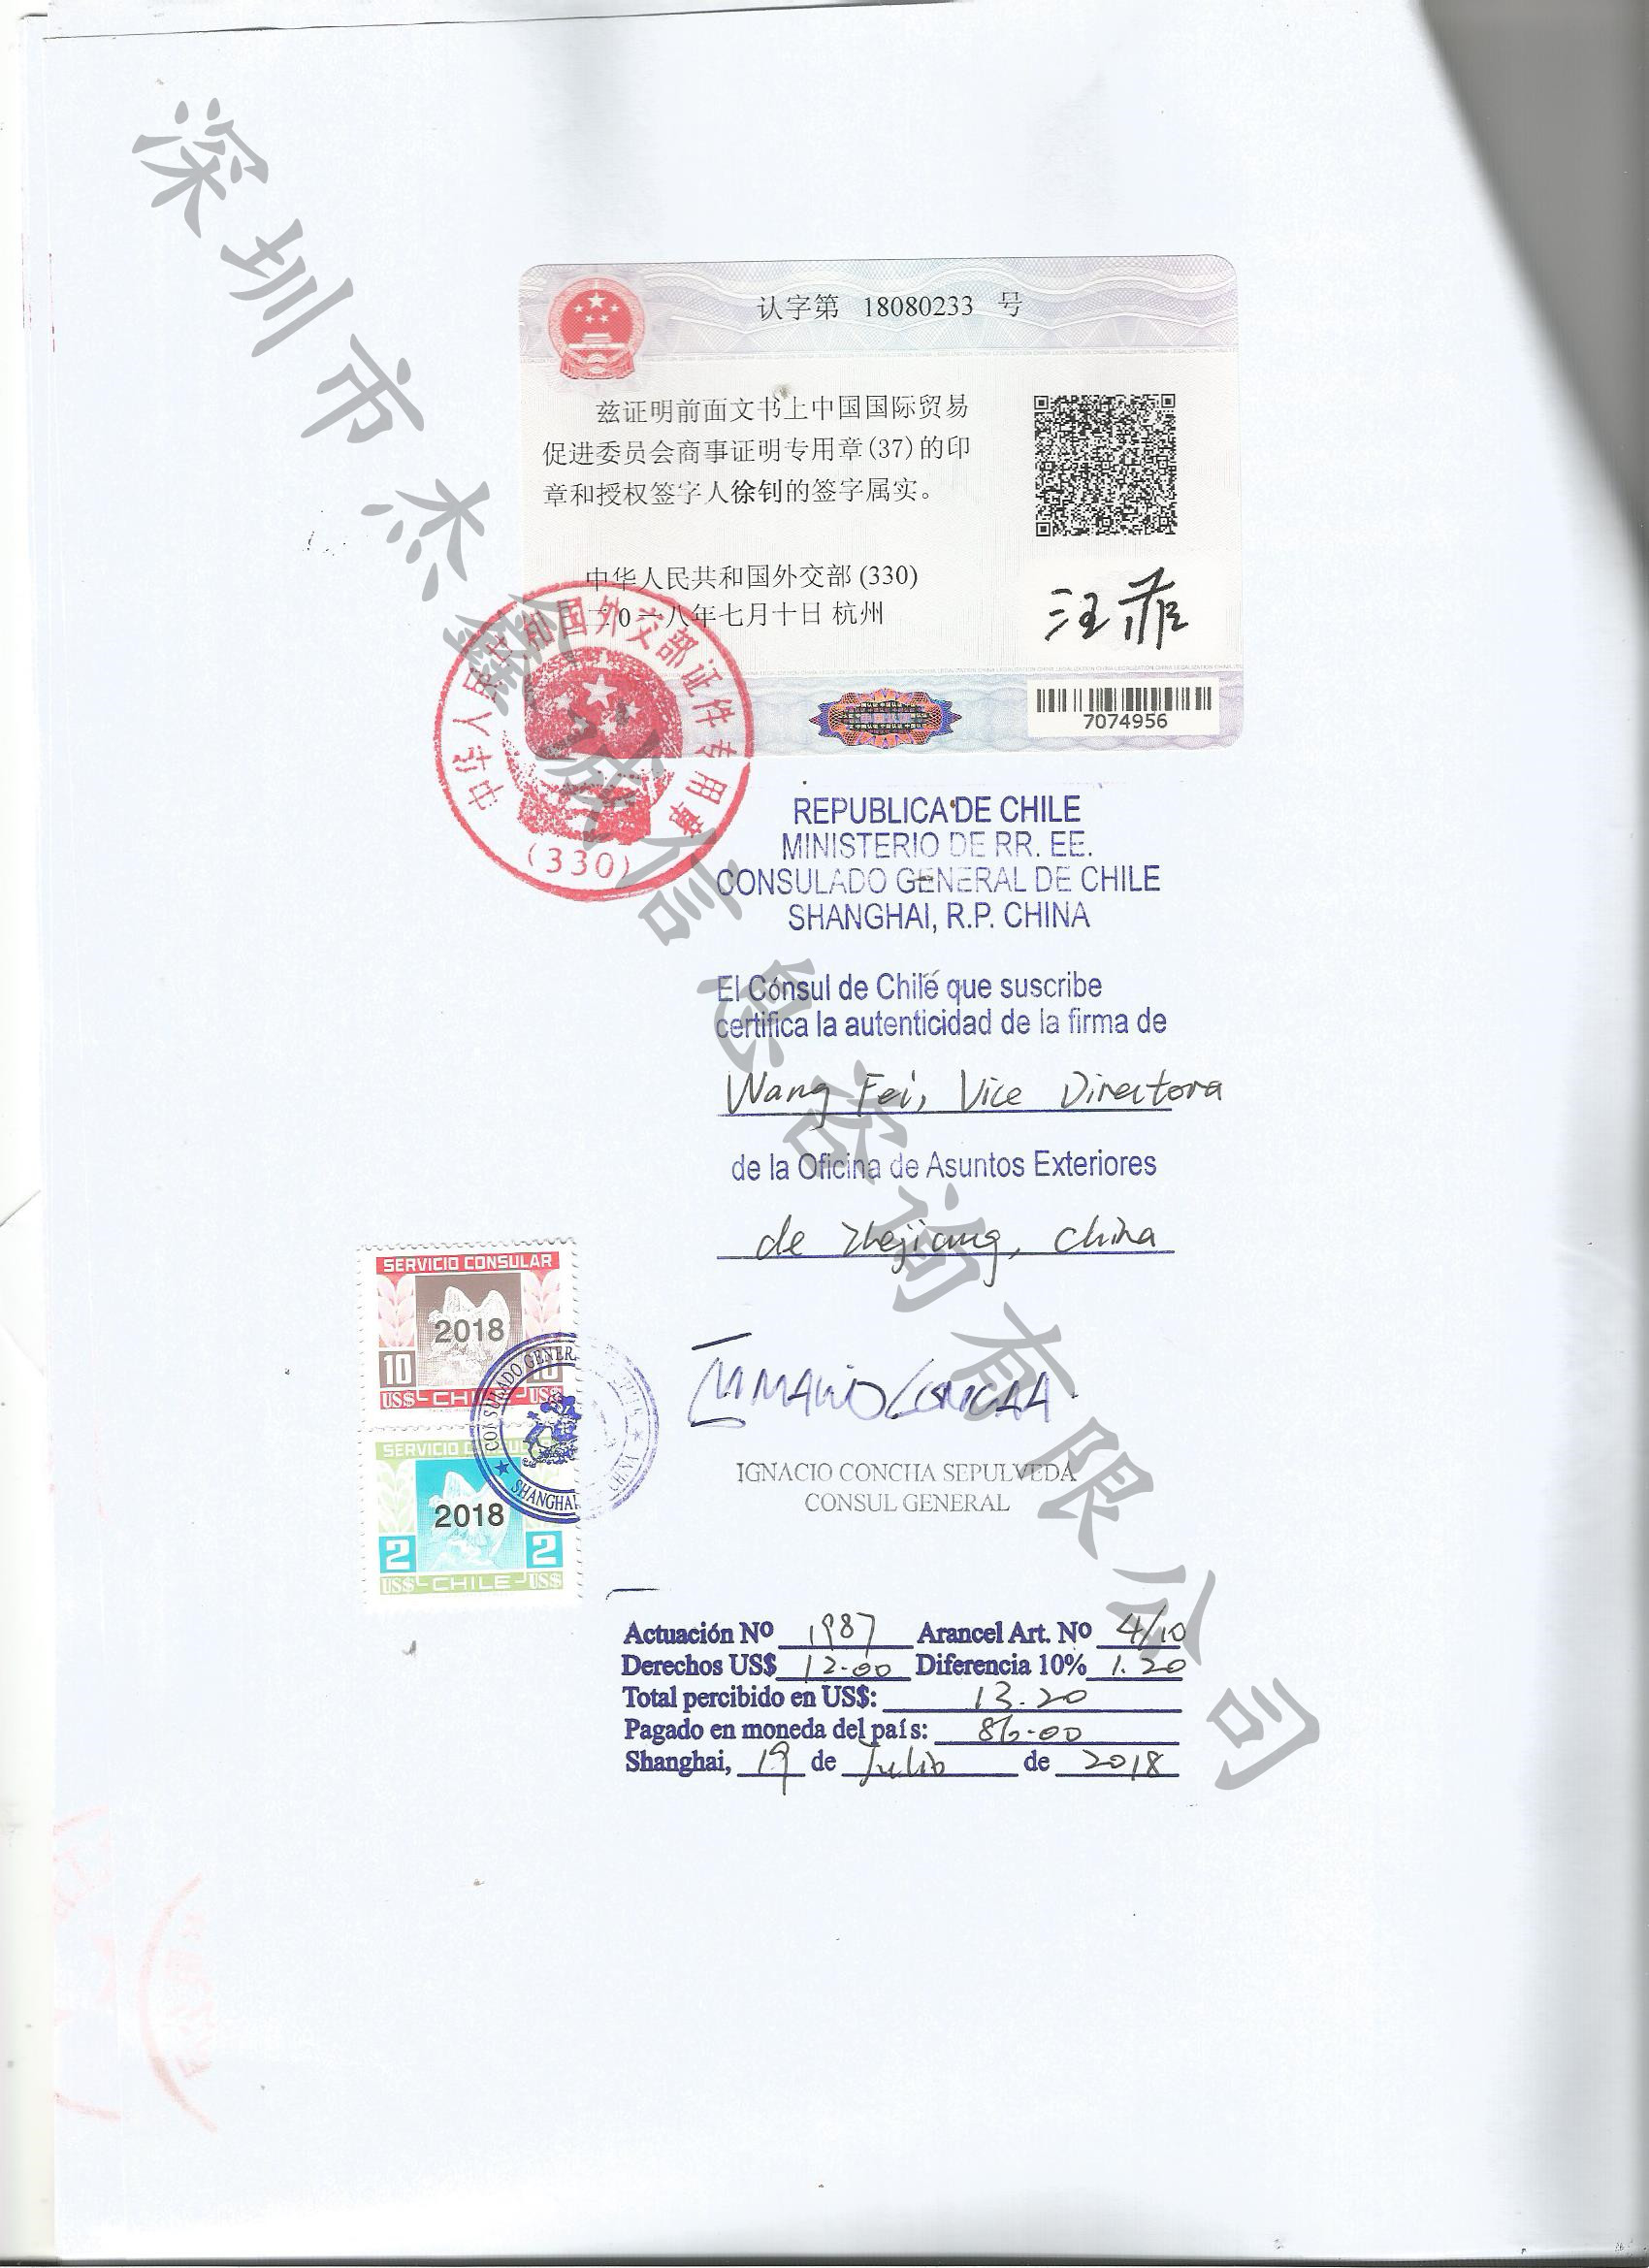 深圳市杰鑫诚信息咨询有限公司
认字第 18080233 号
兹证明前面文书上中国国际贸易
促进委员会商事证明专用章(37)的印
章和授权签字人徐钊的签字属实。
中华人民共和国外交部(330)
二0一八年七月十日 杭州
汪菲
7074956
中华人民共和国外交部证件专用章
(330)
REPUBLICA DE CHILE
MINISTERIO DE RR. EE.
CONSULADO GENERAL DE CHILE
SHANGHAI, R.P. CHINA
El Cónsul de Chile que suscribe
certifica la autenticidad de la firma de
Wang Fei, Vice Directora
de la Oficina de Asuntos Exteriores
de Zhejiang, China
SERVICIO CONSULAR
2018
10
US$ CHILE US$
SERVICIO CONSULAR
2018
2 2
US$ CHILE US$
CONSULADO GENERAL
SHANGHAI
IGNACIO CONCHA SEPULVEDA
CONSUL GENERAL
Actuación Nº 1987 Arancel Art. Nº 4/10
Derechos US$ 12.00 Diferencia 10% 1.20
Total percibido en US$: 13.20
Pagado en moneda del país: 86.00
Shanghai, 19 de Julio de 2018